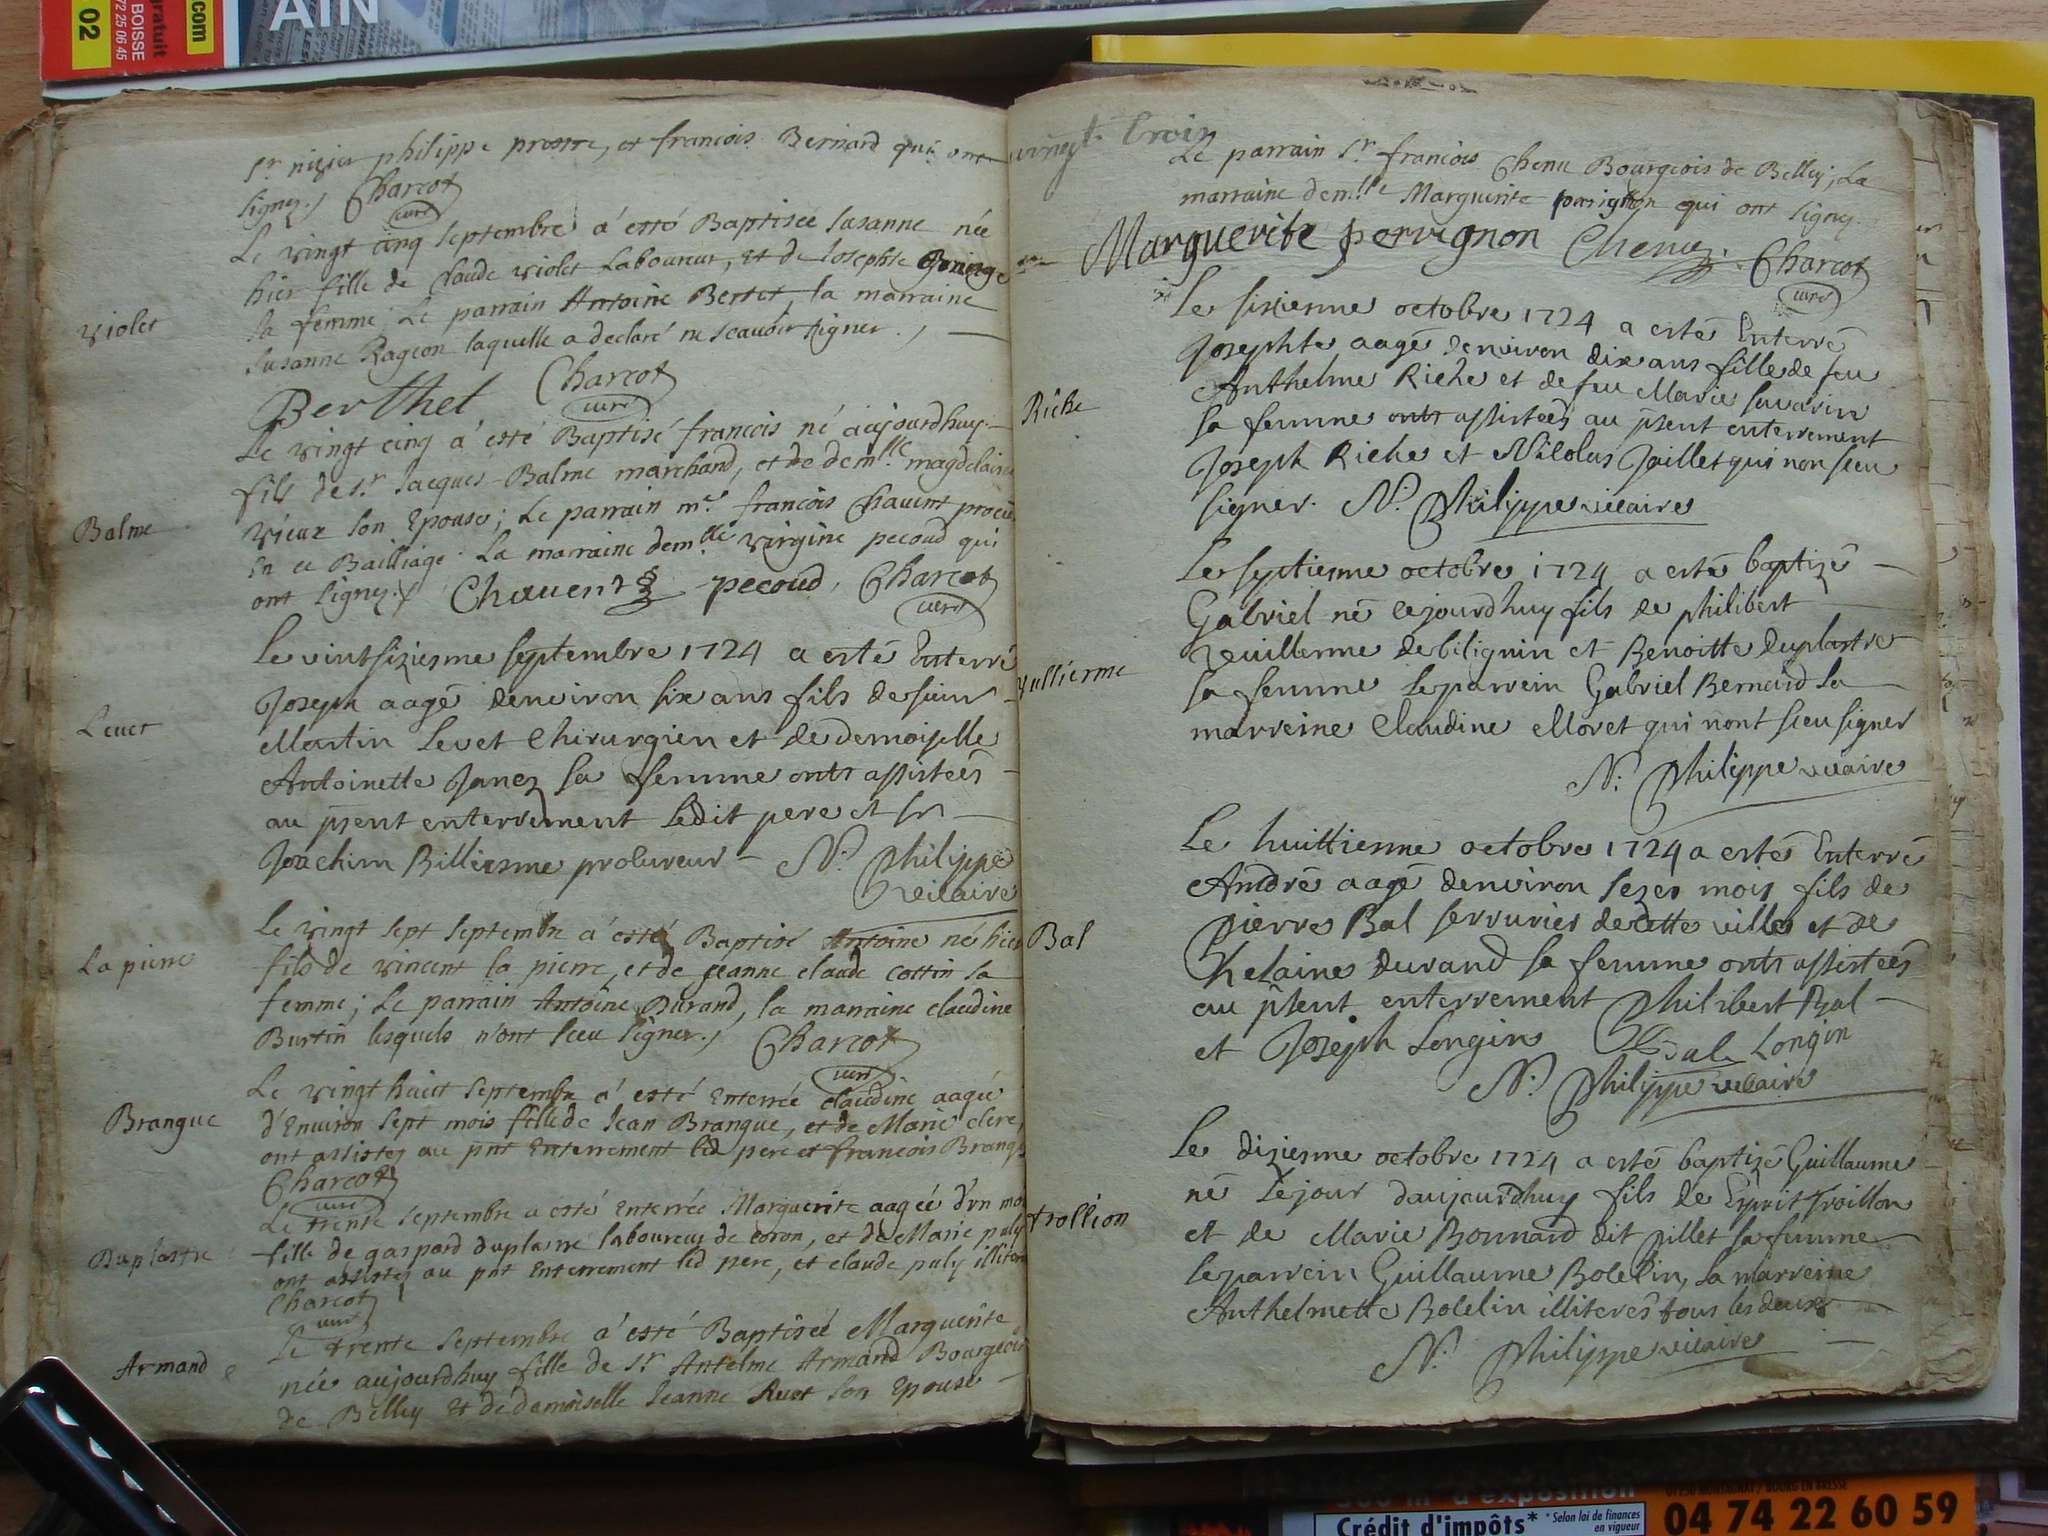 AIN
.com
gratuit
BOISSE
72 25 06 45
02
Sr nizier philippe prestre, et francois Bernard qui ont
signez./ Charcot
curé
Violet
Le vingt cinq septembre á esté Baptisée susanne née
hier fille de Claude violet Laboureur, et de Josephte
sa femme; Le parrain Antoine Bertet, la marraine
susanne Rageon laquelle a declaré ne scauoir signer./
Berthet Charcot
curé
Balme
Le vingt cinq á esté Baptisé francois né aujourdhuy
fils de sr Jacques Balme marchand, et de demlle magdelaine
vieux son Epouse; Le parrain mre francois Chauent procu
En ce Bailliage La marraine demlle virgine pecoud qui
ont signez./ Chauent pecoud, Charcot
curé
Leuet
Le vintsiziesme septembre 1724 a esté Enterré
Joseph aagé denviron six ans fils de sieur
Martin Levet Chirurgien et de demoiselle
Antoinette Janez sa femme onts assistees
au psent enterrement ledit pere et sr
Joachim Billiesme procureur N. Philippe
vicaire
La pierre
Le vingt sept septembre á esté Baptisé Antoine né hier
fils de vincent la pierre, et de jeanne claude cottin sa
femme; Le parrain Antoine Durand, la marraine claudine
Burtin lesquels n'ont sceu signer./ Charcot
curé
Brangue
Le vingt huict septembre á esté Enterrée claudine aagée
d'Enuiron sept mois fille de Jean Brangue, et de Marie clere,
ont assistez au pnt Enterrement led pere et francois Brangue
Charcot
curé
Duplastre
Le trente septembre a esté Enterrée Marguerite aagée d'vn mo
fille de gaspard duplastre laboureur de coron, et de Marie puly
ont assistez au pnt Enterrement led pere, et claude puly illiteré
Charcot
curé
Armand
Le trente septembre á esté Baptisée Marguerite
née aujourdhuy fille de sr Antelme Armand Bourgeois
de Belley et de demoiselle Jeanne Ruot son Epouse
vingt trois
Le parrain sr francois Chenu Bourgeois de Belley; La
marraine demlle Marguerite parignon qui ont signez
Marguerite perrignon Chenu. Charcot
curé
Riche
Le sixienne octobre 1724 a esté Enterré
Josephte aagé denviron dix ans fille de feu
Anthelme Riche et de feu Marie savarin
sa femme onts assistees au psent enterrement
Joseph Riche et Nicolas Jaillet qui non sceu
signer. N. Philippe vicaire
Vullierme
Le septiesme octobre 1724 a esté baptizé
Gabriel né cejourdhuy fils de philibert
veuillerme de bilignin et Benoitte duplastre
sa femme le parrein Gabriel Bernard la
marreine Claudine Moret qui nont sceu signer
N. Philippe vicaire
Bal
Le huittiesme octobre 1724 a esté Enterré
André aagé denviron sezes mois fils de
pierre Bal serrurier de cette ville et de
helaine durand sa femme onts assistees
au psent enterrement Philibert Bal
et Joseph Longin Bal Longin
N. Philippe vicaire
trollion
Le diziesme octobre 1724 a esté baptizé Guillaume
né lejour daujourdhuy fils de Esprit Troillon
et de Marie Bonnard dit pillet sa femme
le parrein Guillaume Bolelin, la marreine
Anthelmette Bolelin illiterés tous les deux
N. Philippe vicaire
d'exposition
Crédit d'impôts* *Selon loi de finances
en vigueur
04 74 22 60 59